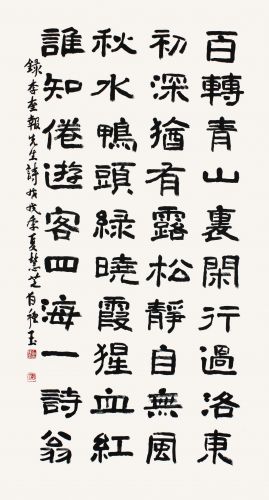 百轉青山裏閑行過洛東
初深猶有露松靜自無風
秋水鴨頭綠曉霞猩血紅
誰知倦遊客四海一詩翁
錄李奎報先生詩 季夏慧芝